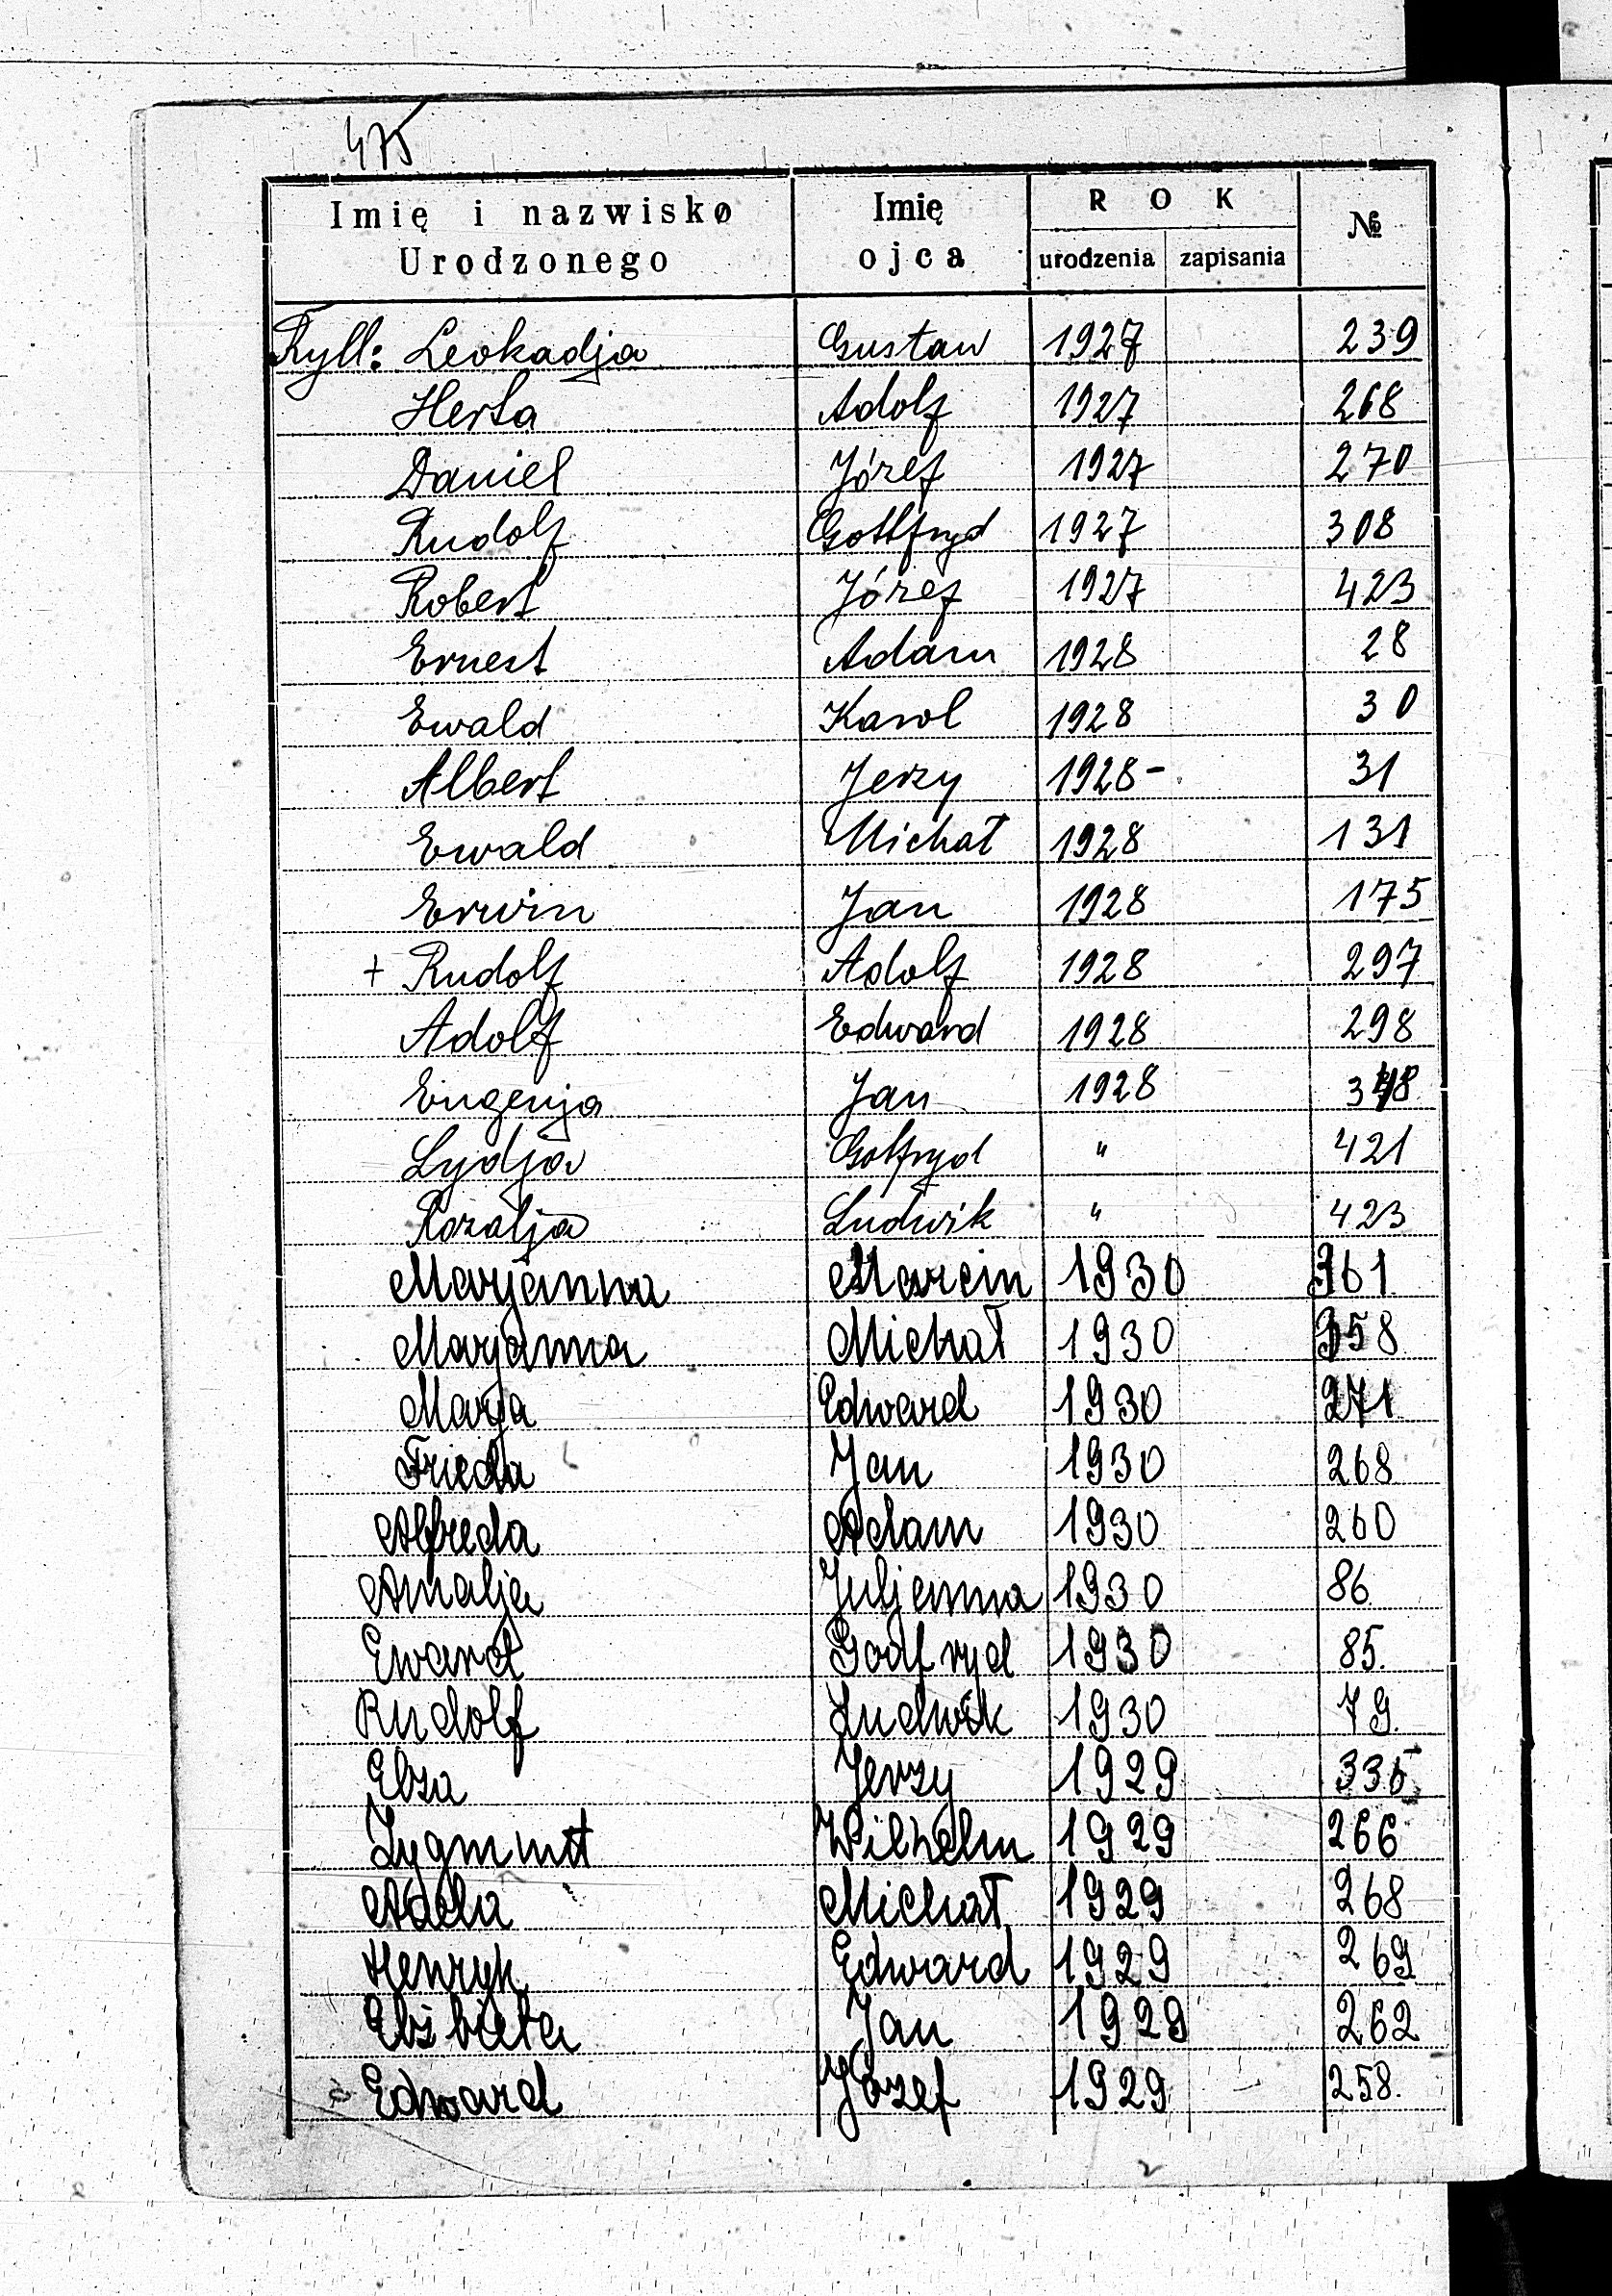 475
Imię i nazwisko Urodzonego Imię ojca ROK urodzenia zapisania №
Ryll: Leokadja Gustaw 1927 239
Herta Adolf 1927 268
Daniel Józef 1927 270
Rudolf Gottfryd 1927 308
Robert Józef 1927 423
Ernest Adam 1928 28
Ewald Karol 1928 30
Albert Jerzy 1928- 31
Ewald Michał 1928 131
Erwin Jan 1928 175
+ Rudolf Adolf 1928 297
Adolf Edward 1928 298
Eugenja Jan 1928
Lydja Gotfryd " 421
Rozalja Ludwik " 423
Marjanna Marcin 1930 361
Marjanna Michał 1930 358
Marja Edward 1930 271
Frieda Jan 1930 268
Alfreda Adam 1930 260
Amalja Juljanna 1930 86
Eward Godfryd 1930 85.
Rudolf Ludwik 1930 79.
Elza Jerzy 1929 335
Zygmunt Wilhelm 1929 266
Adela Michał 1929 268
Henryk Edward 1929 269
Elżbieta Jan 1929 262
Edward Józef 1929 258.